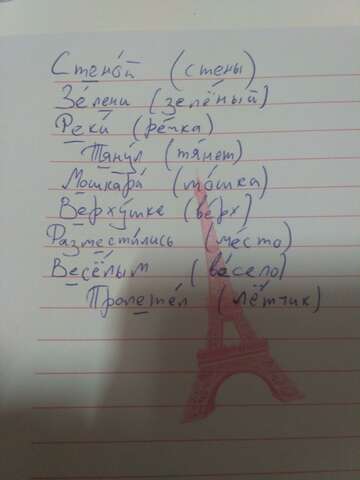 Стено́й (стены)
Зе́лени (зелёный)
Реки́ (ре́чка)
Тяну́л (тя́нет)
Мошкара́ (мо́шка)
Верху́шке (ве́рх)
Разместились (ме́сто)
Весёлым (ве́село)
Пролете́л (лётчик)